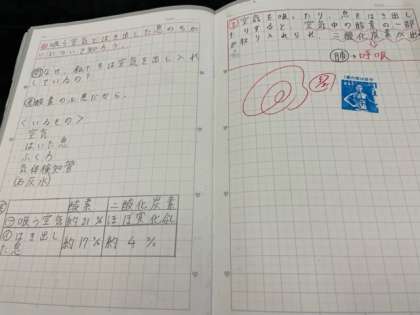 吸う空気とはき出した息のちが
いについて知ろう。
なぜ、私たちは空気を出し入れ
しているの?
酸素の
だから。
空気
はいた息
ふくろ
気体検知管
石灰水
酸素 二酸化炭素
吸う空気 約21% ほぼ変化なし
はき出し
た息 約17% 約4%
空気を吸ったり、息をはき出し
たりすると、空気中の酸素の一部
が取り入れられ、二酸化炭素が出
肺
呼吸